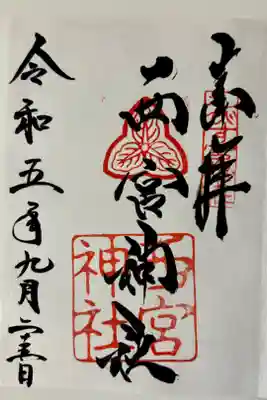 奉拝
西宮神社
西宮
神社
令和五年九月